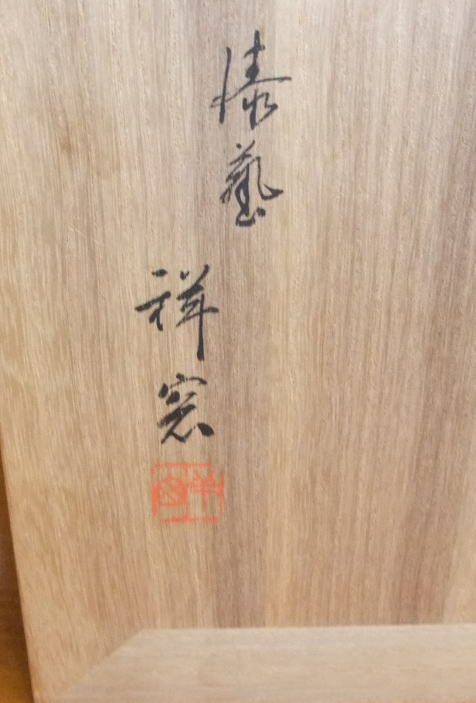 漆藝
祥窓